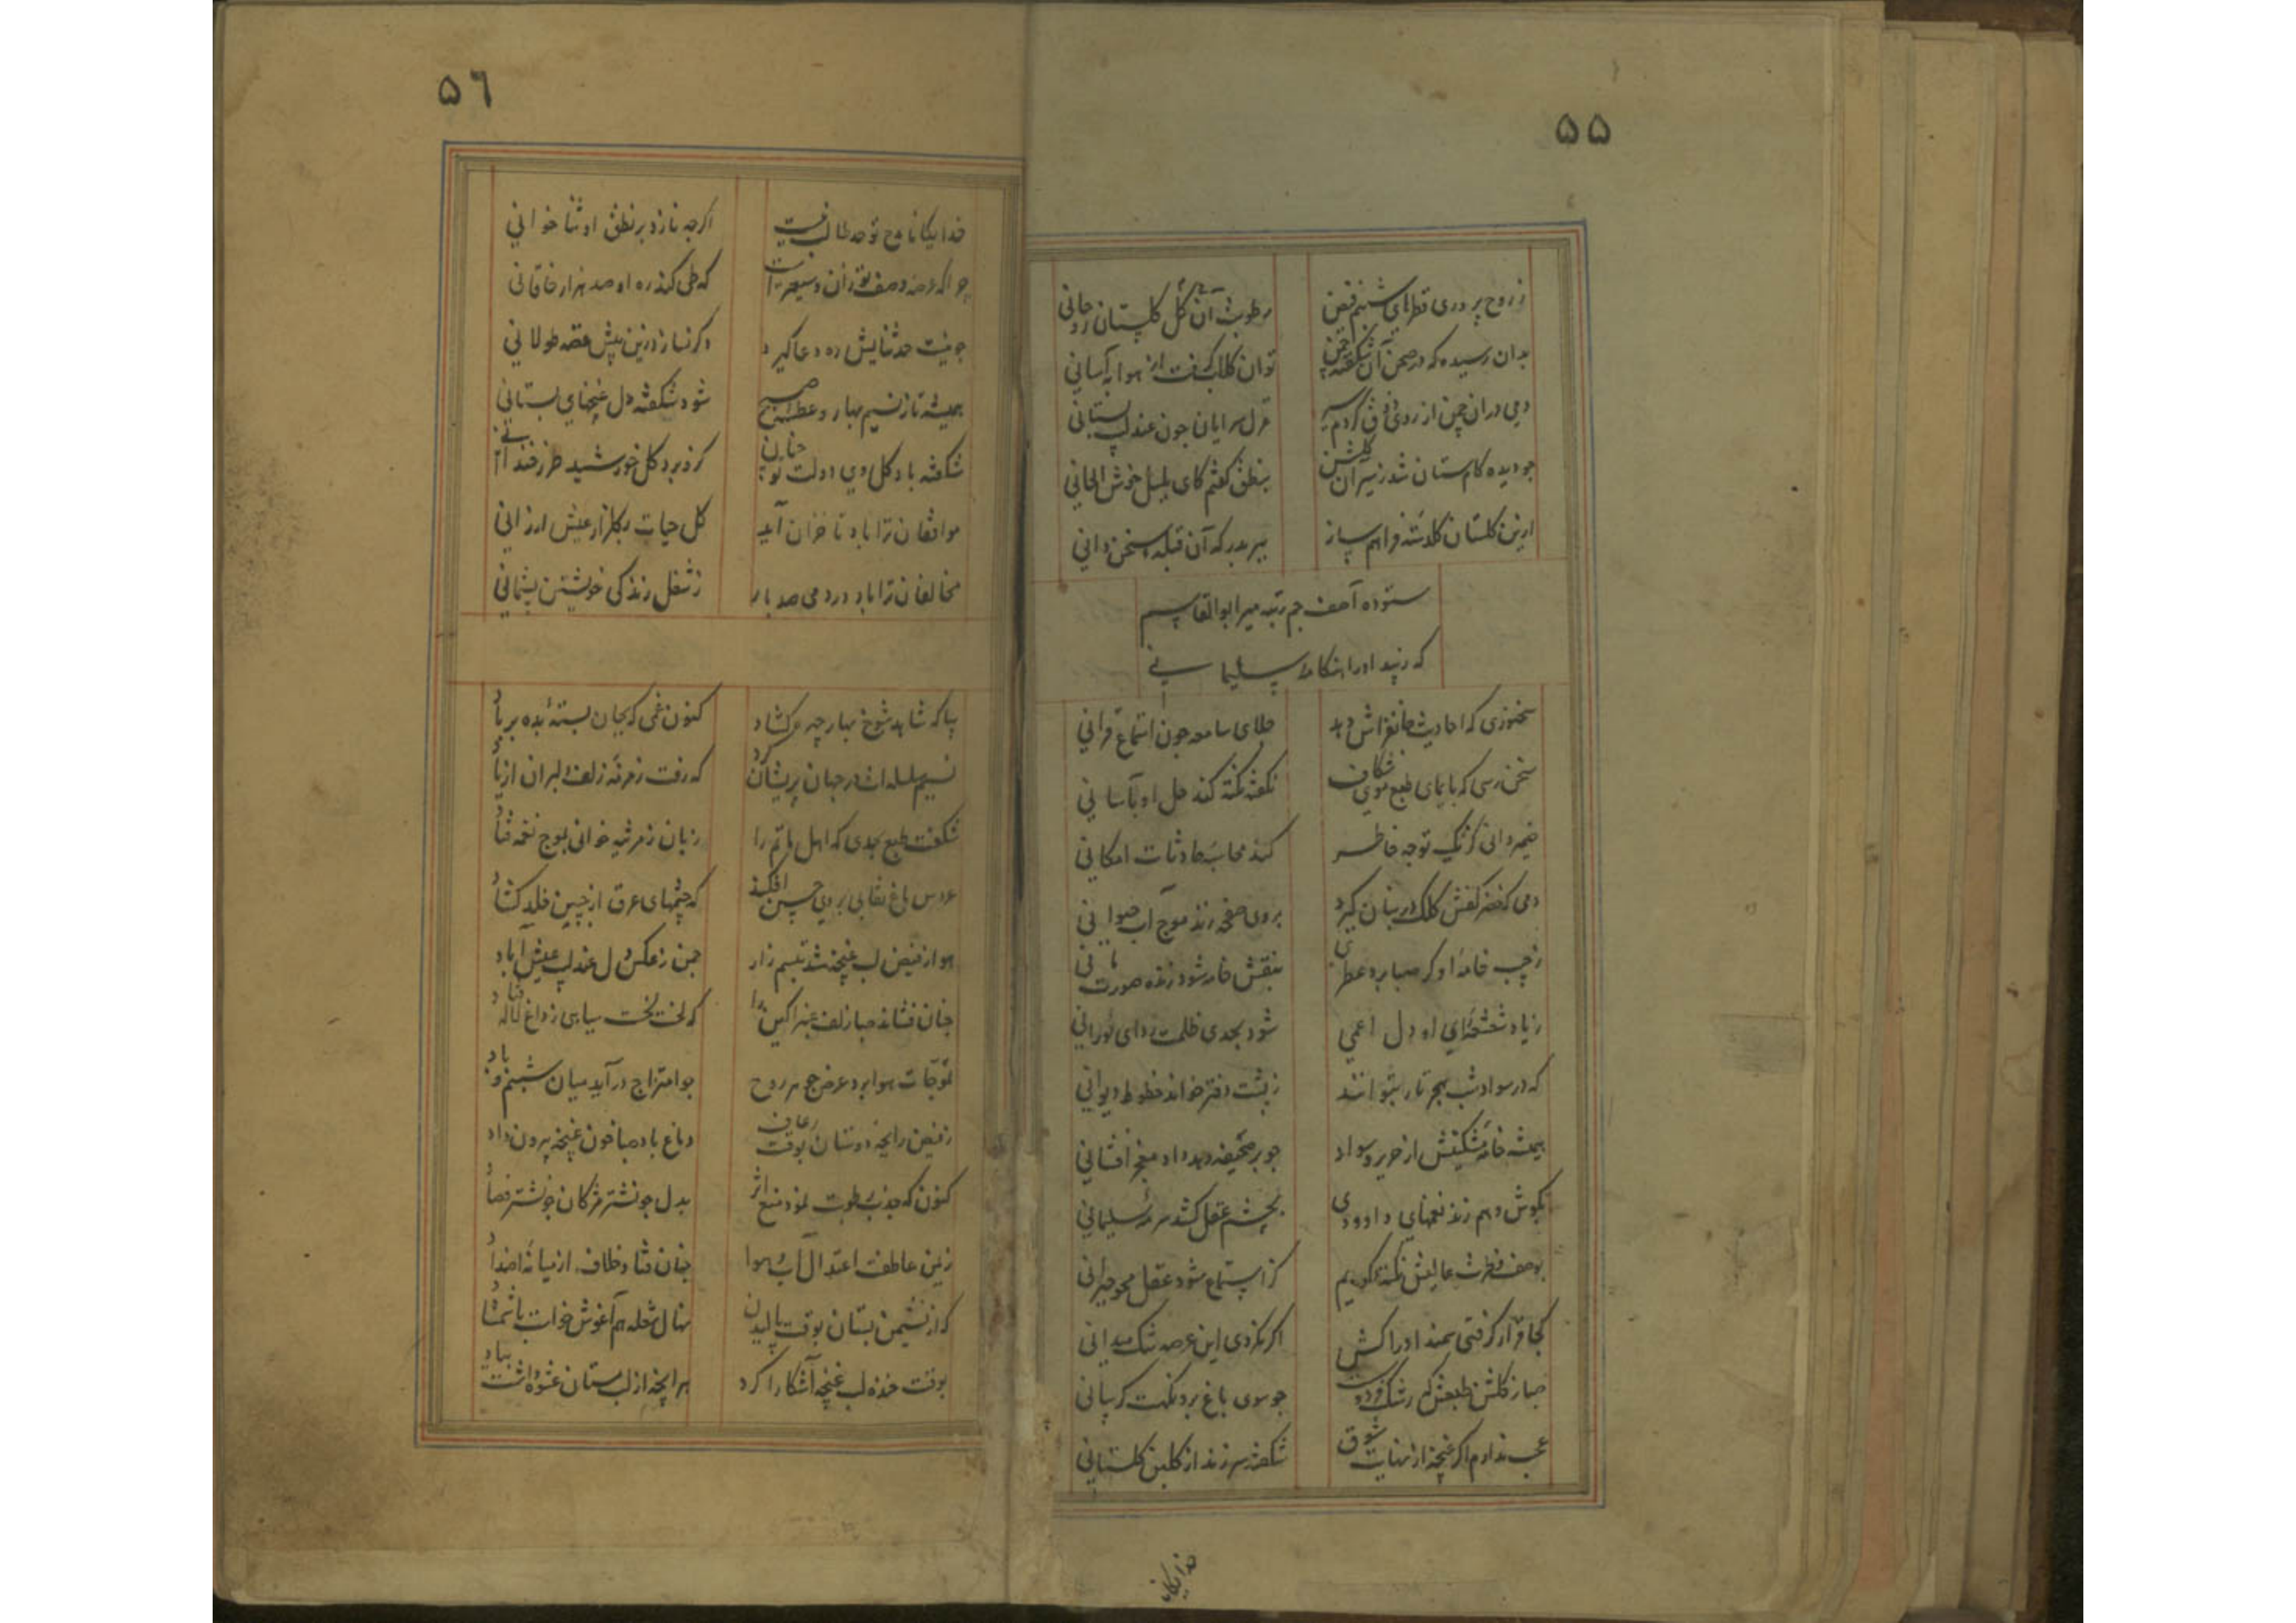 ۵۵
ز روح پروری قطرهای شبنم فیض
رطوبت آن گل گلستان روحانی
بدان رسیده که در صحن آن شکفته چمن
توان گلاب گرفت از هوا به آسانی
دمی دران چمن از روی ذوق گردم سیر
غزل سرایان چون عندلیب بستانی
چو دیده کام ستان شد ز سیر آن گلشن
بنطق گفتم کای بلبل خوش الحانی
ازین گلستان گلدسته فراهم ساز
ببر بدرگه آن قبله سخن دانی
ستوده آصف جم رتبه میر ابوالقاسم
که زیبد او را هنگامه سلیمانی
سخنوری که احادیث جانفزاش دهد
جلای سامعه چون استماع قرآنی
سخن رسی که بایمای طبع موی شکاف
نگفته نکته کند حل او بآسانی
ضمیر دانی کز یک توجه خاطر
کند محاسبه حادثات امکانی
دمی که خضر کفش کلک در بنان گیرد
بروی صفحه زند موج آب حیوانی
ز جیب خامه او گر صبا برد عطری
بنقش خامه شود زنده صورت مانی
زیاد شعشعه رای او دل اعمی
شود بحدی ظلمت زدای نورانی
که در سواد شب هجر تار بتوانند
ز پشت دفتر خواند خطوط دیوانی
همیشه خامه مشکینش از حریر سواد
چو بر صحیفه دهد داد عنبر افشانی
بگوش وهم زند نغمهای داوودی
بچشم عقل کشد سرمه سلیمانی
بوصف فطرت عالیش نکته گویم
کز استماع شود عقل محو حیرانی
کجا قرار گرفتی سمند ادراکش
اگر نکردی این عرصه تنگ میدانی
صبا ز گلشن طبعش که رشک
چو سوی باغ برد نکهت گریبانی
عجب ندارم اگر غنچه از نهایت شوق
شکفته سر زند از گلبن گلستانی
خدایگانا
۵٦
خدایگانا مدح تو حد طالب نیست
اگرچه نازد بر نطق او ثنا خوانی
چرا که عرصه وصف تو زان وسیعتر است
که طی کند ره او صد هزار خاقانی
چو نیست حد ثنایش ره دعا گیرد
دگر نسازد زین بیش قصه طولانی
همیشه تا ز نسیم بهار و عطر صبح
شود شکفته دل غنچهای بستانی
شکفته باد گل دولت تو چنان
کزو برد گل خورشید طرز خندانی
موافقان ترا باد تا خزان آید
گل حیات بگلزار عیش ارزانی
مخالفان ترا باد در دمی صد بار
ز شغل زندگی خویشتن پشیمانی
بیا که شاهد شوخ بهار چهره گشاد
کنون غمی که بجان بسته بده بر باد
نسیم سلسله اش در جهان پریشان کرد
که رفت زمزمه زلف دلبران از یاد
شکفت طبع بحدی که اهل ماتم را
زبان ز مرثیه خوانی بموج نغمه فتاد
عروس باغ نقابی بروی حسن افکند
که چشمهای عرق از جبین خلد گشاد
هوا ز فیض لب غنچه شد تبسم زار
چمن ز عکس دل عندلیب عیش آباد
چنان فشاند صبا زلف عنبر آگین را
که لخت لخت سیاهی ز داغ لاله فتاد
تموجات هوا برد عرض جوهر روح
چو امتزاج درآید میان شبنم و باد
ز فیض رایحه دوستان بوقت رعاف
دماغ باد صبا خون غنچه بیرون داد
کنون که جذب رطوبت نمود منع اثر
بدل چو نشتر مژگان چو نشتر فصاد
ز یمن عاطفت اعتدال آب و هوا
چنان فتاد خلاف از میانه اضداد
که از نشیمن بستان بوقت بالیدن
نهال شعله هم آغوش خواست با شمشاد
بوقت خنده لب غنچه آشکارا کرد
هر آنچه از لب مستان عشوه داشت بیاد